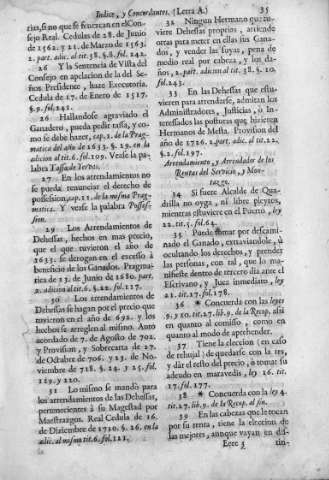 Indice, y Concordantes. (Letra A.) 35
rias, si no que se fenezcan en el Con-
sejo Real. Cedulas de 28. de Junio
de 1562. y 21. de Marzo de 1563.
2. part. adic. al tit. 38. §. 8. fol. 242.
26 Y la Sentencia de Vista del
Consejo en apelacion de la del Se-
ñor Presidente, hace Executoria.
Cedula de 17. de Enero de 1517.
§. 9. fol. 242.
26 Hallandose agraviado el
Ganadero, pueda pedir tassa, y co-
mo se debe hazer, cap. 1. de la Prag-
matica del año de 1633. §. 19. en la
adicion al tit. 6. fol. 109. Vease la pa-
labra Tassa de Yervas.
27 En los arrendamientos no
se pueda renunciar el derecho de
possession, cap. 11. de la misma Prag-
matica. Y vease la palabra Posses-
sion.
29 Los Arrendamientos de
Dehessas, hechos en mas precio,
que el que tuvieron el año de
1633. se derogan en el excesso à
beneficio de los Ganados. Pragma-
tica de 13. de Junio de 1680. part.
2. adicion al tit. 6. §. 22. fol. 117.
30 Los arrendamientos de
Dehessas se hagan por el precio que
tuvieron el año de 692. y los
hechos se arreglen al mismo. Auto
acordado de 7. de Agosto de 702.
y Provision, y Sobrecarta de 27.
de Octubre de 706. y 23. de No-
viembre de 718. §. 24. y 25. fol.
119. y 220.
31 Lo mismo se mandò para
los arrendamientos de las Dehessas,
pertenecientes à su Magestad por
Maestrazgos. Real Cedula de 16.
de Diciembre de 1730. §. 26. en la
adic. al mismo tit. 6. fol. 121.
32 Ningun Hermano que tu-
viere Dehessas proprias, arriende
otras para meter en ellas sus Gana-
dos, y vender las suyas, pena de
medio real por cabeza, y los da-
ños, 2. part. adicion al tit. 38. §. 10.
fol. 243.
33 En las Dehessas que estu-
vieren para arrendarse, admitan los
Administradores, Justicias, ò In-
teressados las posturas que hizieren
Hermanos de Mesta. Provision del
año de 1726. 2. part. adic. al tit.
22. §. 2. fol. 197.
Arrendamiento, y Arrendador de las
Rentas del Servicio, y Mon-
tazgo.
34 Si fuere Alcalde de Qua-
drilla no oyga, ni libre pleytos,
mientras estuviere en el Puerto, ley
22. tit. 5. fol. 64.
35 Puede tomar por descami-
nado el Ganado, extraviandole, ò
ocultando los derechos, y prender
las personas, con tal, que lo ma-
nifieste dentro de tercero dia ante el
Escrivano, y Juez inmediato, ley
21. tit. 17. fol. 178.
36 * Concuerda con las leyes
9. y 10. tit. 27. lib. 9. de la Recop. assi
en quanto al comisso, como en
quanto al modo de aprehender.
37 Tiene la eleccion (en caso
de rehujal) de quedarse con la res,
y dàr el resto del precio, ò tomar su
adeudo en maravedis, ley 16. tit.
17. fol. 177.
38 * Concuerda con la ley 4.
tit. 27. lib. 9. de la Recop. al fin.
39 En las cabezas que le tocan
por su renta, tiene la eleccion de
las mejores, aunque vayan en dis-
Eeee 3 tin-